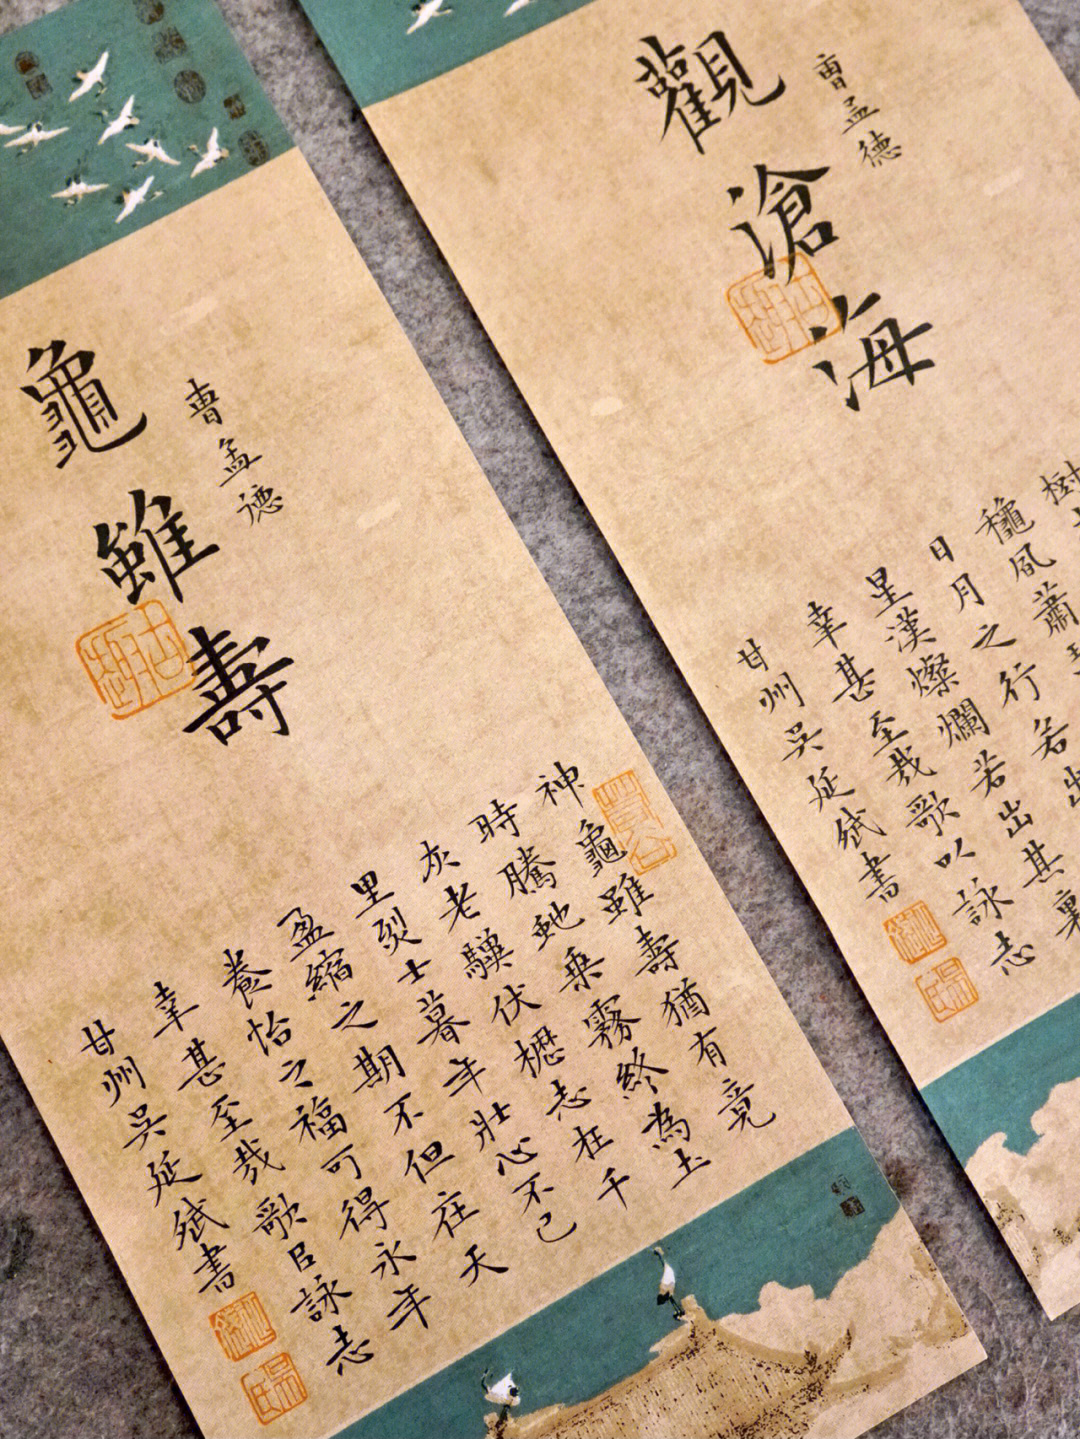 觀滄海
曹孟德
樹
穐風蕭
日月之行若出
星漢燦爛若出其裏
幸甚至哉歌以詠志
甘州吳延斌書
龜雖壽
曹孟德
神龜雖壽猶有竟
時騰虵乘霧終為土
灰老驥伏櫪志在千
里烈士暮年壯心不已
盈縮之期不但在天
養怡之福可得永年
幸甚至哉歌㠯詠志
甘州吳延斌書